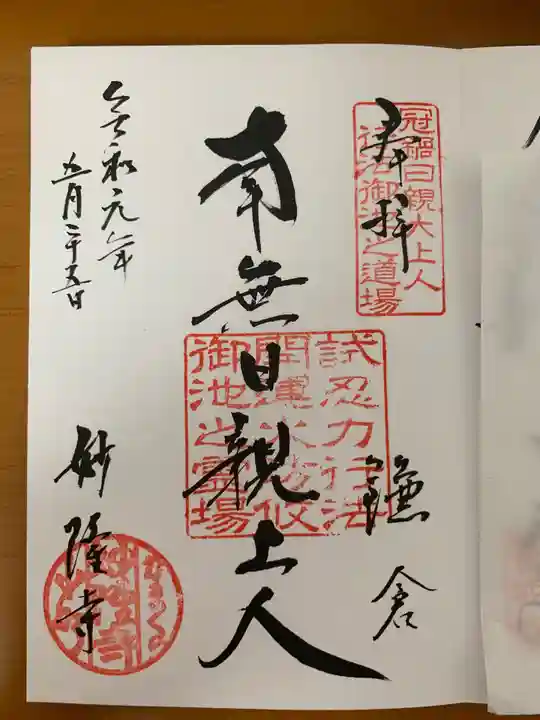 奉拝
冠鍋日親大上人
行法御池之道場
鎌倉
南無日親上人
試忍力行法
御池之霊場
令和元年
五月二十五日
妙隆寺